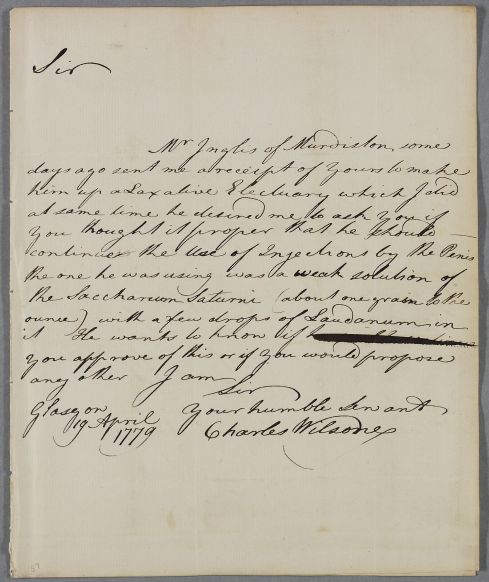 Sir
Mr Inglis of Murdiston, some
days ago sent me a receipt of yours to make
him up a Laxative Electuary which I did
at same time he desired me to ask you if
you thought it proper that he should
continue the use of Ingections by the Penis
the one he was using was a weak solution of
the Saccharum Saturni (about one grain to the
ounce) with a few drops of Laudanum in
it He wants to know if
you approve of this or if you would propose
any other I am
Sir
Glasgow your humble Servant
19 April Charles Wilsone
1779